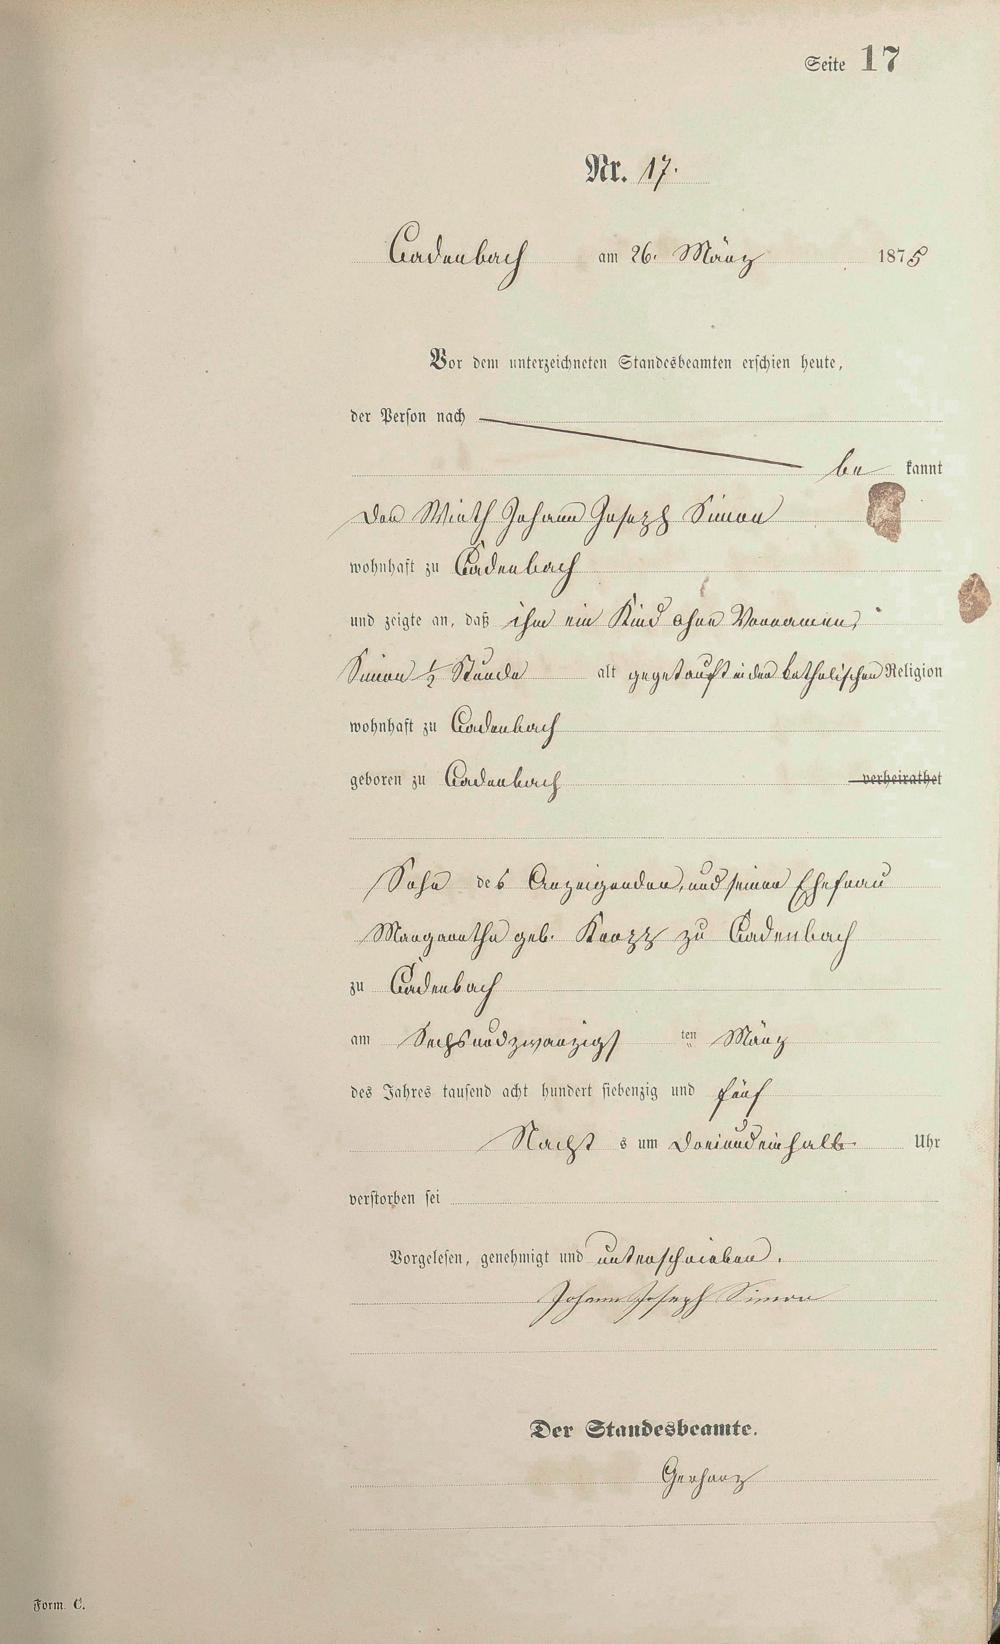 Seite 17
Nr. 17.
Cadenbach am 26. März 1875
Vor dem unterzeichneten Standesbeamten erschien heute,
der Person nach
be kannt
Den Wirth Johann Joseph Simon
wohnhaft zu Cadenbach
und zeigte an, daß ihm ein Kind ohne Vornamen,
Simon 1/2 Stunde alt gegetauft in der katholischen Religion
wohnhaft zu Cadenbach
geboren zu Cadenbach verheirathet
Sohn des Anzeigenden, und seiner Ehefrau
Margaretha geb. Knopp zu Cadenbach
zu Cadenbach
am Sechsundzwanzigs ten März
des Jahres tausend acht hundert siebenzig und fünf
Nacht s um Dreiundeinhalb Uhr
verstorben sei
Vorgelesen, genehmigt und unterschrieben.
Johann Joseph Simon
Der Standesbeamte.
Gerharz
Form. C.